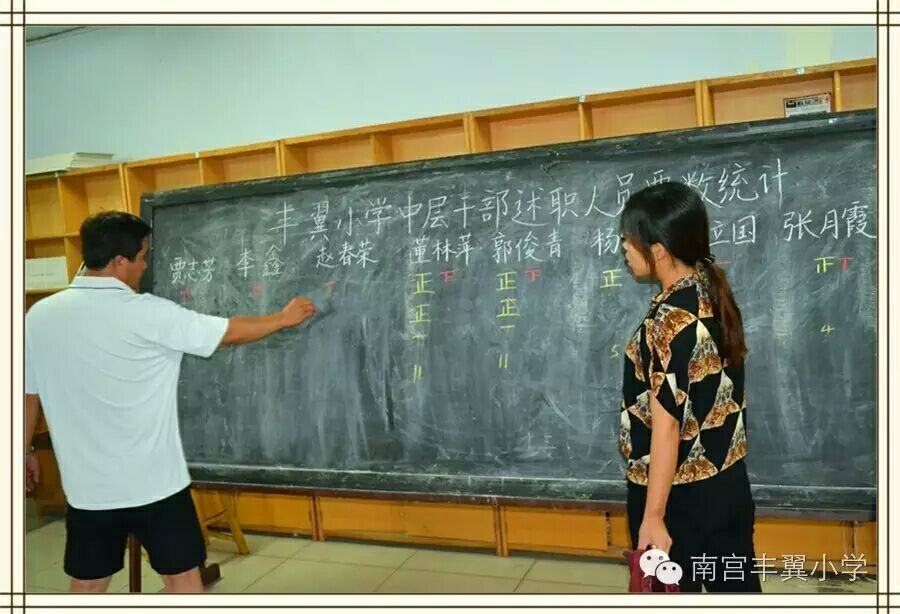 丰翼小学中层干部述职人员票数统计
贾志芳 李鑫 赵春荣 董林苹 郭俊青 杨 立国 张月霞
下 正 下 正 下 正 正 丁
正 正
一 一
11 11 5 4
南宫丰翼小学